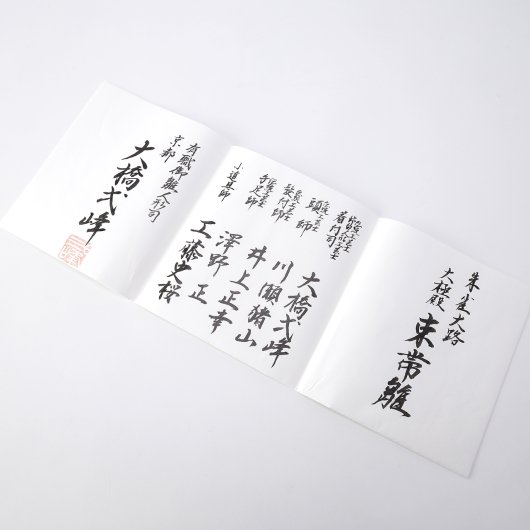 朱雀大路
大極殿
束帯雛
着付司
大橋弌峰
頭師
川瀬猪山
髪付師
井上正幸
手足師
澤野正
小道具師
工藤史桜
有職御雛人形司
京都
大橋弌峰